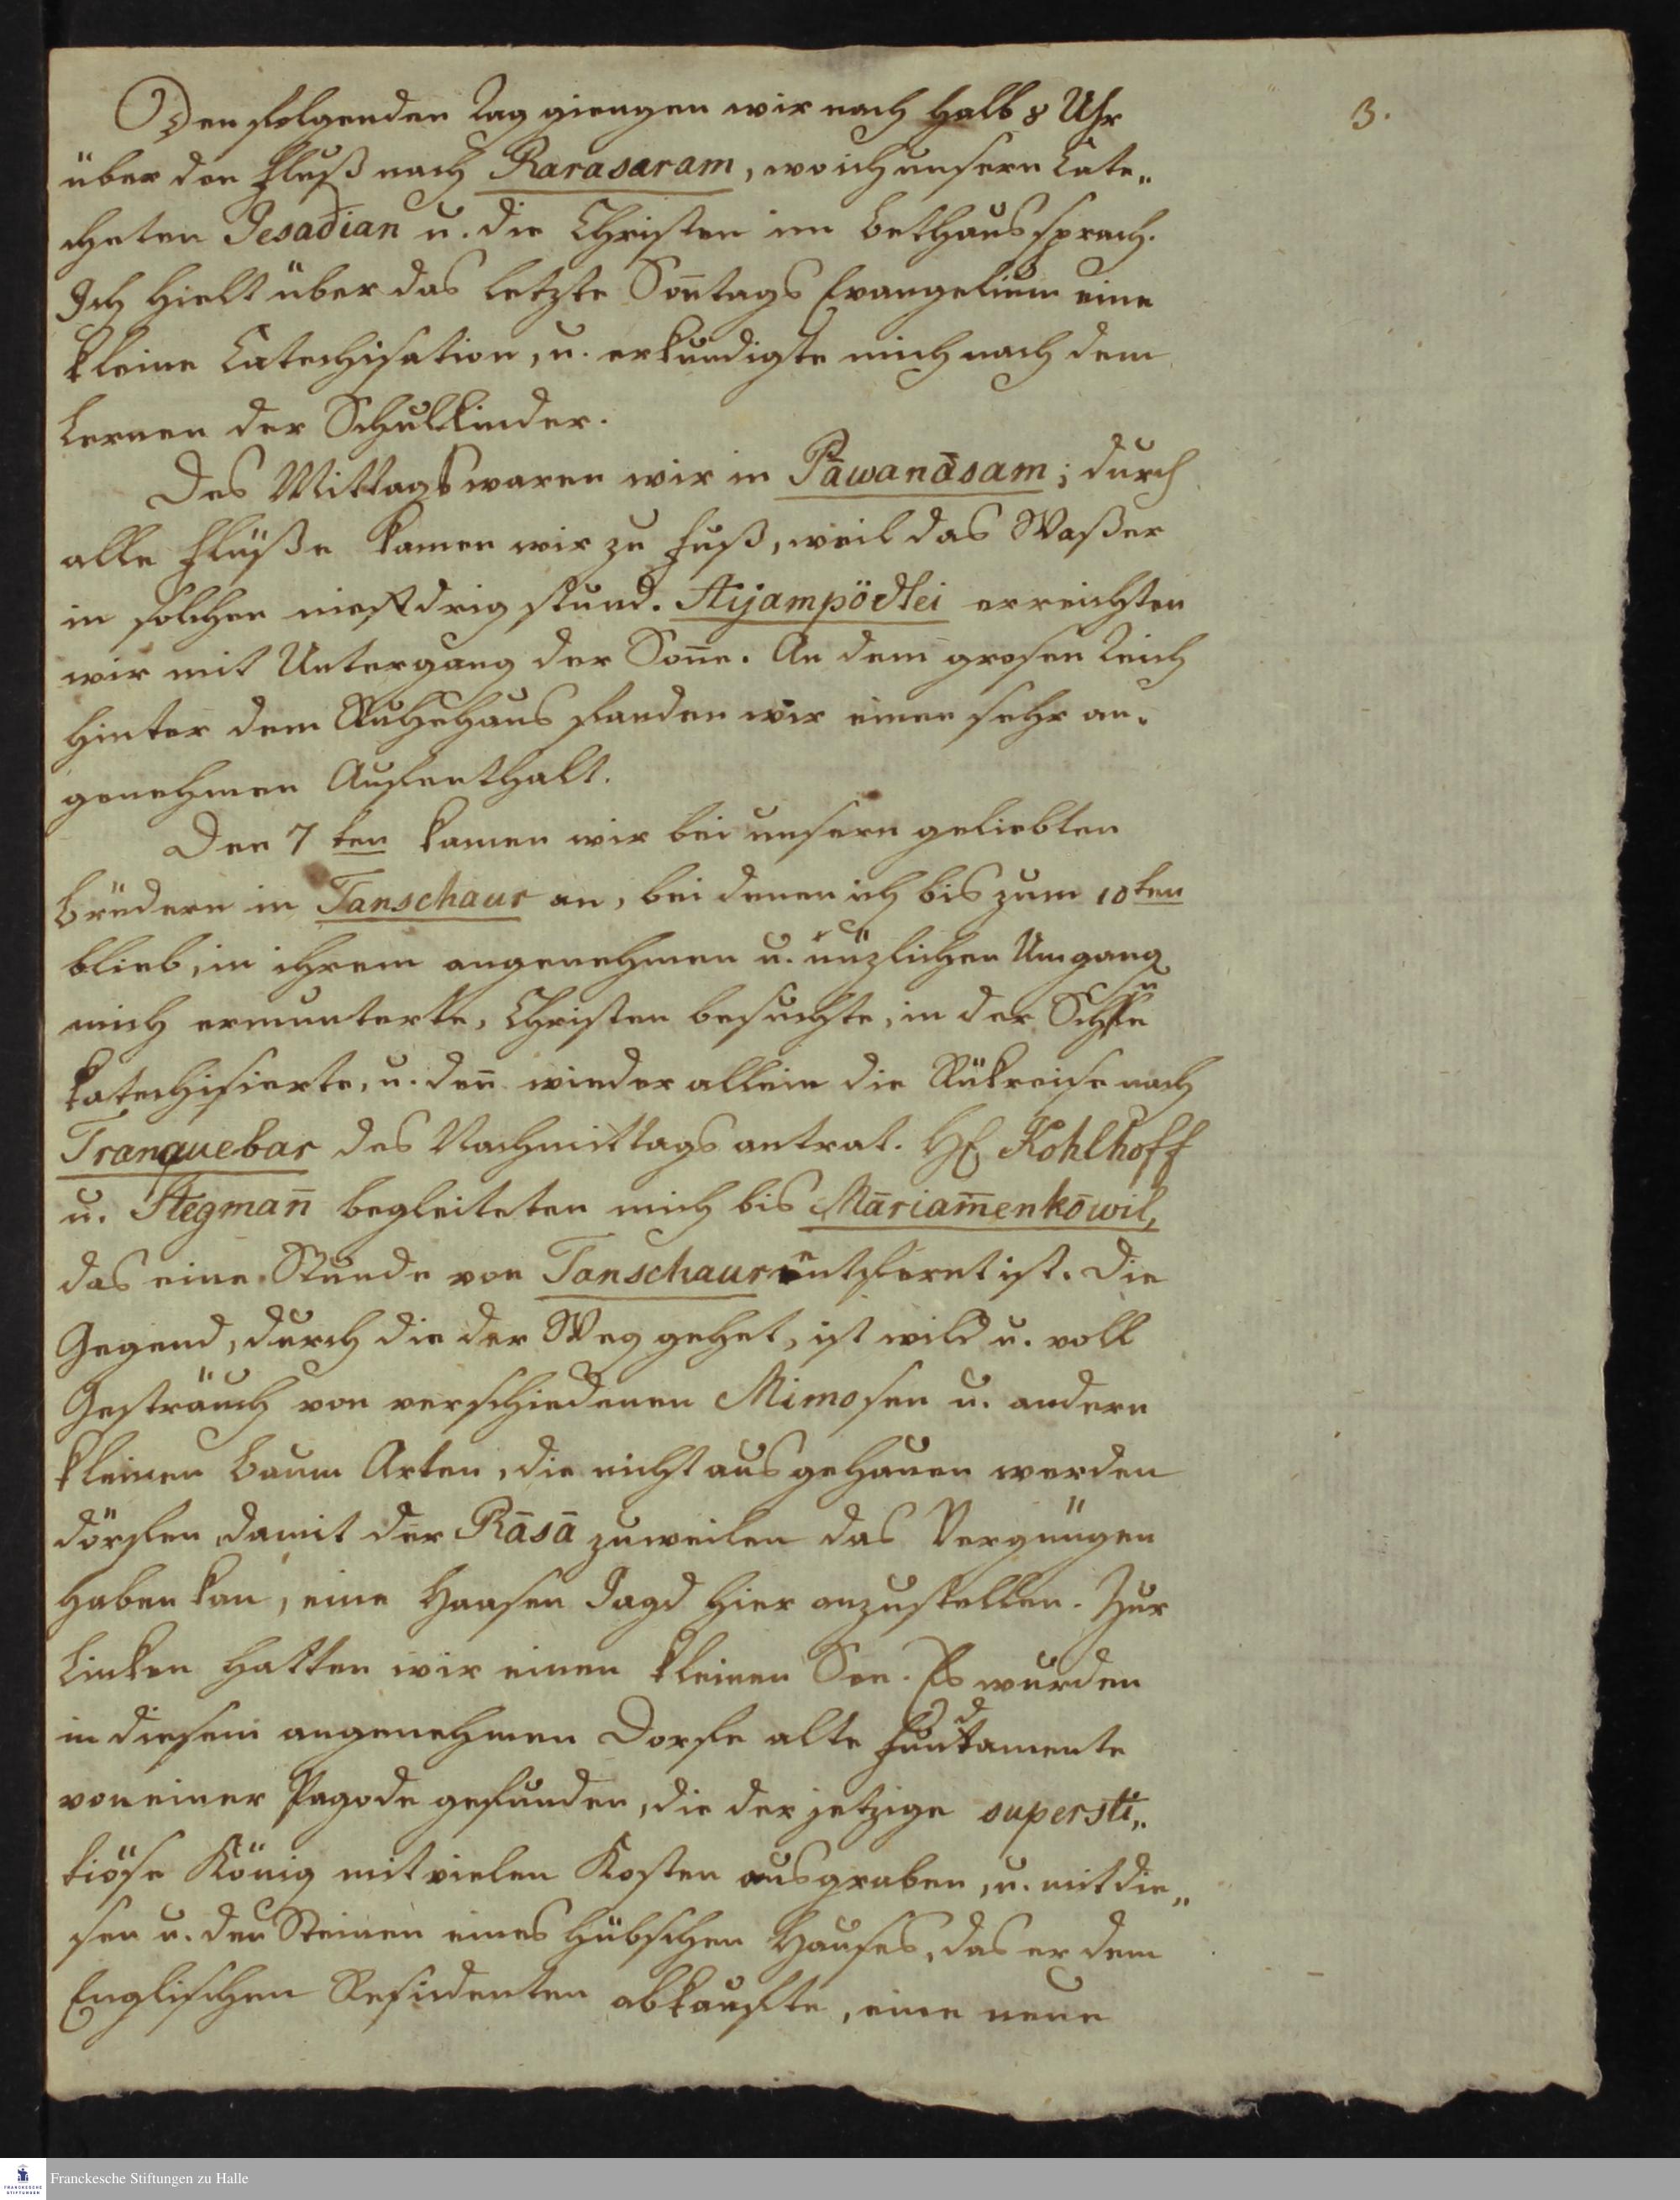 3.
Den folgenden Tag giengen wir nach halb 8 Uhr
über den Fluß nach Rarasaram, wo ich unsern Cate„
cheten Jesadian u. die Christen im Bethaus sprach.
Ich hielt über das letzte Son̄tags Evangelium eine
kleine Catechisation, u. erkundigte mich nach dem
Lernen der Schulkinder.
Des Mittags waren wir in Pāwanāsam; durch
alle Flüße kamen wir zu Fuß, weil das Waßer
in solchen niedrig stund. Aijampöttei erreichten
wir mit Untergang der Son̄e. An dem grosen Teich
hinter dem Ruhehaus fanden wir einen sehr an„
genehmen Aufenthalt.
Den 7ten kamen wir bei unsern geliebten
Brüdern in Tanschaur an, bei denen ich bis zum 10ten
blieb, in ihrem angenehmen u. nüzlichen Umgang
mich ermunterte, Christen besuchte, in der Schule
katechisierte, u. den̄ wieder allein die Rükreise nach
Tranquebar des Nachmittags antrat. HE Kohlhoff
u. Stegman̄ begleiteten mich bis Māriam̄enkōwil,
das eine Stunde von Tanschaur entfernt ist. Die
Gegend, durch die der Weg gehet, ist wild u. voll
Gesträuch von verschiedenen Mimosen u. andern
kleinen Baum Arten, die nicht ausgehauen werden
dörfen damit der Rāsā zuweilen das Vergnügen
haben kan, eine Haasen Jagd hier anzustellen. Zur
Linken hatten wir einen kleinen See. Es wurden
in diesem angenehmen Dorfe alte Fundamente
von einer Pagode gefunden, die der jetzige supersti„
tiöse König mit vielen Kosten ausgraben, u. mit die„
sen u. den Steinen eines hübschen Hauses, das er dem
Englischen Residenten abkaufte, eine neue
Franckesche Stiftungen zu Halle
FRANCKESCHE STIFTUNGEN